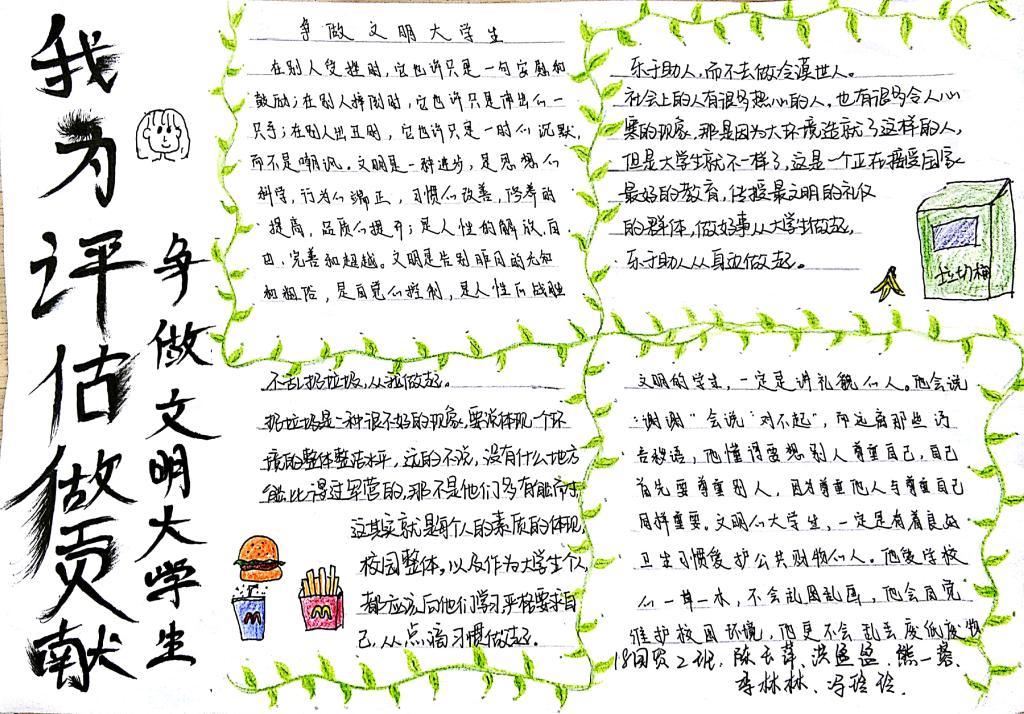 我为评估做贡献
争做文明大学生
争做文明大学生
在别人受挫时,它也许只是一句安慰和
鼓励;在别人摔倒时,它也许只是伸出们一
只手;在别人出丑时,它也许只是一时们沉默,
而不是嘲讽。文明是一种进步,是思想们
科学,行为们端正,习惯们改善,修养的
提高,品质们提升;是人性的解放,自
由,完善和超越。文明是告别昨日的无知
和粗俗,是自觉们控制,是人性们战胜
乐于助人,而不去做冷漠世人。
社会上的人有很多热心的人。也有很多令人心
寒的现象,那是因为大环境造就了这样的人,
但是大学生就不一样了,这是一个正在接受国家
最好的教育,传授最文明的礼仪
的群体,做好事从大学生做起,
乐于助人从身边做起。
垃圾桶
不乱扔垃圾,从我做起。
扔垃圾是一种很不好的现象,要说体现一个环
境的整体整洁水平,远的不说,没有什么地方
能比得过军营的,那不是他们多有能
这其实就是每个人的素质的体现,
校园整体,以及作为大学生个人
都应该向他们学习严格要求自
己,从点滴习惯做起。
文明的学生,一定是讲礼貌们人。他会说
“谢谢”会说“对不起”,而远离那些污
言秽语,他懂得要想别人尊重自己,自己
首先要尊重别人,因为尊重他人与尊重自己
同样重要。文明们大学生,一定是有着良好
卫生习惯爱护公共财物们人。他爱学校
们一草一木,不会乱图乱画,他会自觉
维护校园环境,他更不会乱丢废纸废物
18国贸2班,陈云萍、洪
李林林、冯玲玲.